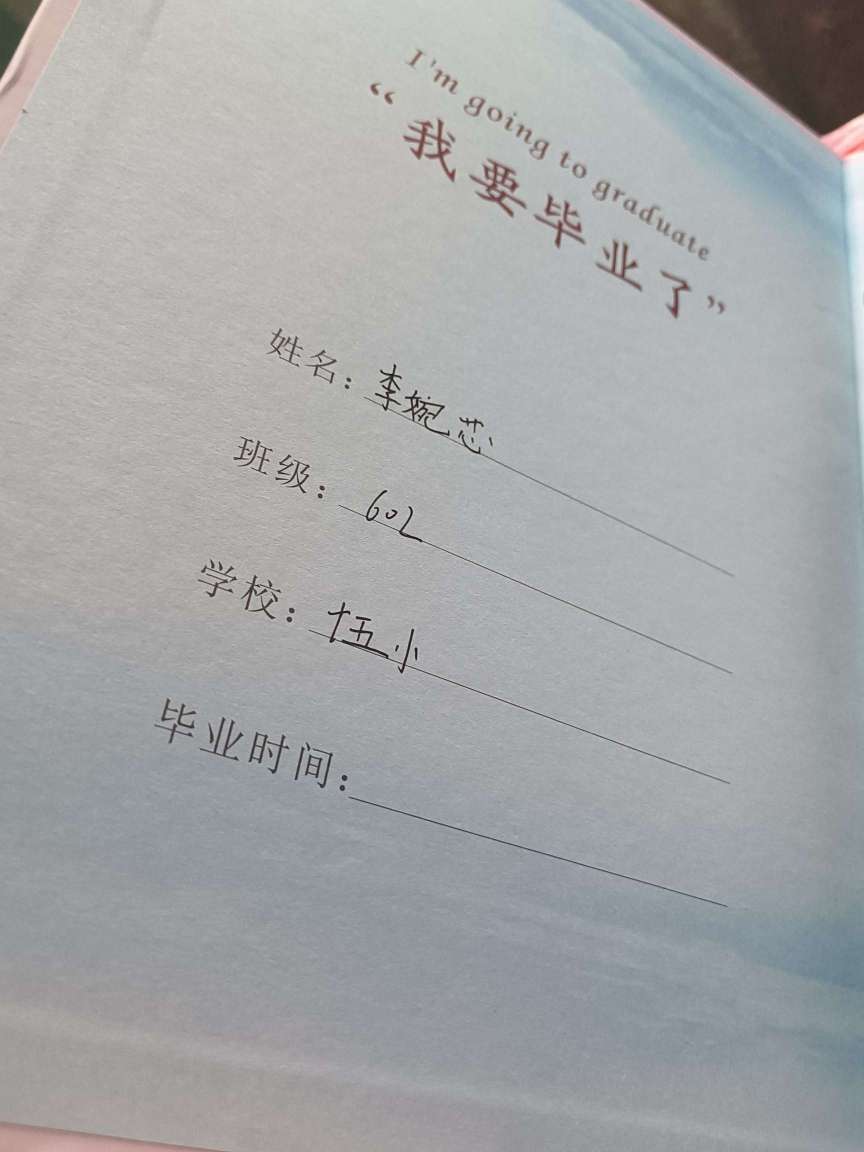 I'm going to graduate
“我要毕业了”
姓名：李婉芯
班级：602
学校：十五小
毕业时间：